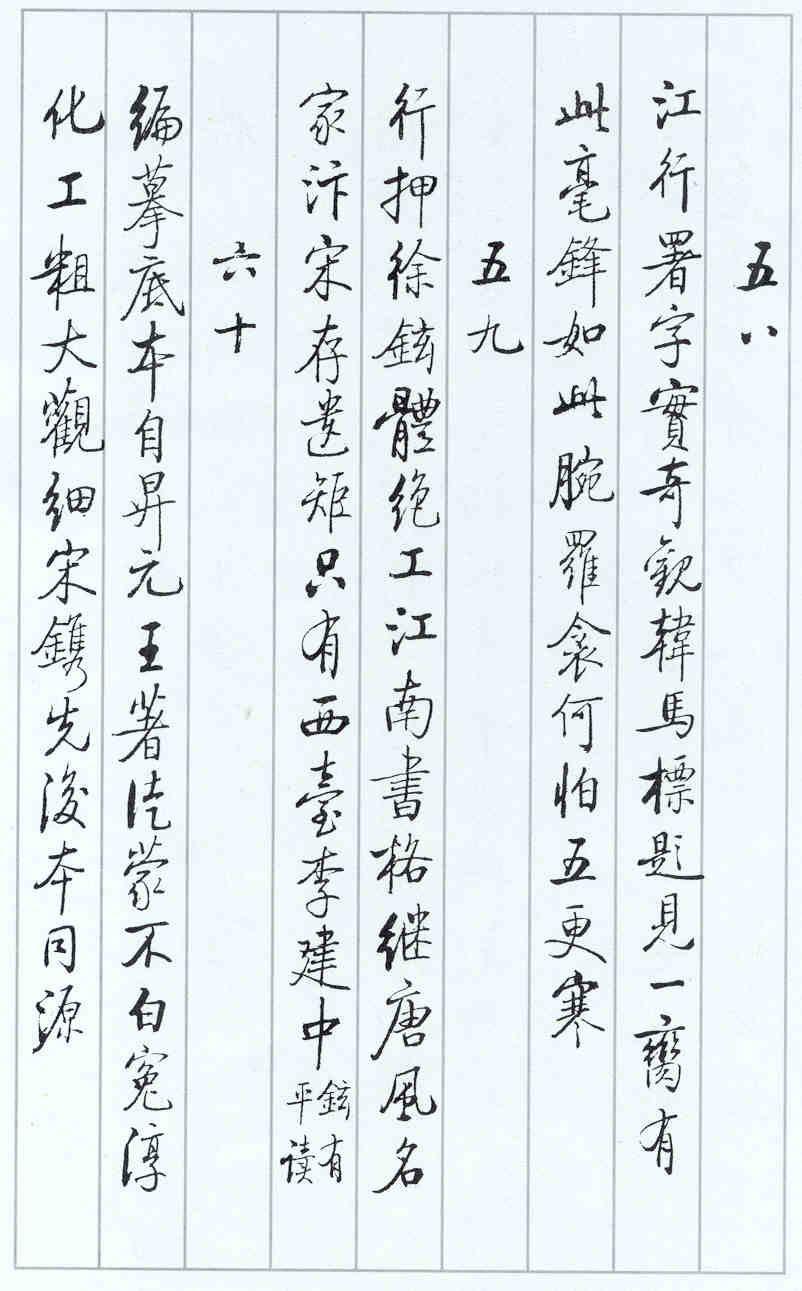 五八
江行署字實奇觀韓馬標題見一臠有
此毫鋒如此腕羅衾何怕五更寒
五九
行押徐鉉體绝工江南書格继唐風名
家汴宋存遺矩只有西臺李建中鉉有平读
六十
編摹底本自昇元王著徒蒙不白寃淳
化工粗大觀细宋鐫先後本同源